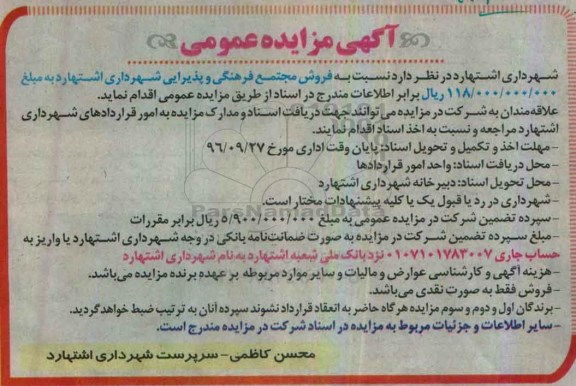 آگهی مزایده عمومی
شهرداری اشتهارد در نظر دارد نسبت به فروش مجتمع فرهنگی و پذیرایی شهرداری اشتهارد به مبلغ
۱۱۸/۰۰۰/۰۰۰/۰۰۰ ریال برابر اطلاعات مندرج در اسناد از طریق مزایده عمومی اقدام نماید.
علاقه‌مندان به شرکت در مزایده می توانند جهت دریافت اسناد و مدارک مزایده به امور قراردادهای شهرداری
اشتهارد مراجعه و نسبت به اخذ اسناد اقدام نمایند.
-مهلت اخذ و تکمیل و تحویل اسناد: پایان وقت اداری مورخ ۹۶/۰۹/۲۷
-محل دریافت اسناد: واحد امور قراردادها
-محل تحویل اسناد: دبیرخانه شهرداری اشتهارد
-شهرداری در رد یا قبول یک یا کلیه پیشنهادات مختار است.
-سپرده تضمین شرکت در مزایده عمومی به مبلغ ۵/۹۰۰/۰۰۰/۰۰۰ ریال برابر مقررات
-مبلغ سپرده تضمین شرکت در مزایده به صورت ضمانت‌نامه بانکی در وجه شهرداری اشتهارد یا واریز به
حساب جاری ۰۱۰۷۱۰۱۷۸۳۰۰۷ نزد بانک ملی شعبه اشتهارد به نام شهرداری اشتهارد
-هزینه آگهی و کارشناسی عوارض و مالیات و سایر موارد مربوطه بر عهده برنده مزایده می‌باشد.
-فروش فقط به صورت نقدی می‌باشد.
-برندگان اول و دوم و سوم مزایده هرگاه حاضر به انعقاد قرارداد نشوند سپرده آنان به ترتیب ضبط خواهد گردید.
-سایر اطلاعات و جزئیات مربوط به مزایده در اسناد شرکت در مزایده مندرج است.
محسن کاظمی- سرپرست شهرداری اشتهارد